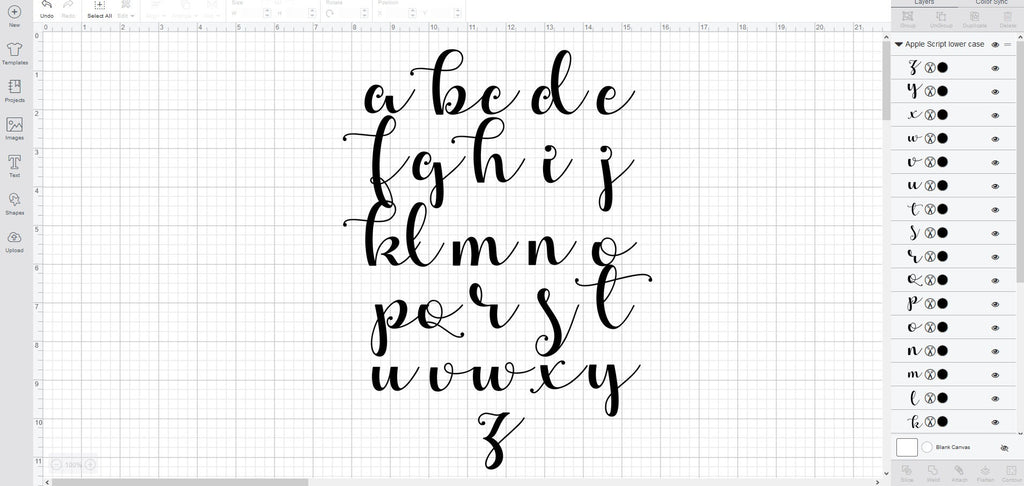 Undo Redo Select All Edit Align Arrange Flip Size W H Rotate Position X Y Layers Color Sync
New
Templates
Projects
Images
Text
Shapes
Upload
0 1 2 3 4 5 6 7 8 9 10 11 12 13 14 15 16 17 18 19 20 21
0
1
2
3
4
5
6
7
8
9
10
11
a b c d e
f g h i j
k l m n o
p q r s t
u v w x y
z
100%
Group UnGroup Duplicate Delete
Apple Script lower case
z
y
x
w
v
u
t
s
r
q
p
o
n
m
l
k
Blank Canvas
Slice Weld Attach Flatten Contour